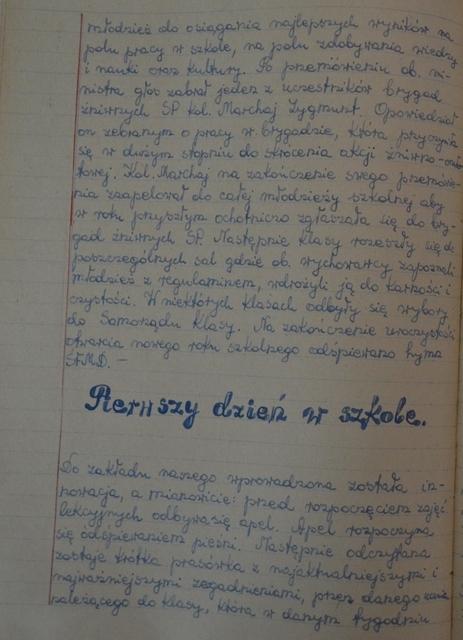 młodzież do osiągania najlepszych wyników na
polu pracy w szkole, na polu zdobywania wiedzy
i nauki oraz kultury. Po przemówieniu ob. mi-
nistra głos zabrał jeden z uczestników brygad
żniwnych SP kol. Marchaj Zygmunt. Opowiedział
on zebranym o pracy w brygadzie, która przyczyniła
się w dużym stopniu do skrócenia akcji żniwno-omło-
towej. Kol. Marchaj na zakończenie swego przemówie-
nia zaapelował do całej młodzieży szkolnej aby
w roku przyszłym ochotniczo zgłaszała się do bry-
gad żniwnych SP. Następnie klasy rozeszły się do
poszczególnych sal gdzie ob. wychowawcy zapoznali
młodzież z regulaminem, wdrożyli ją do karności i
czystości. W niektórych klasach odbyły się wybory
do Samorządu Klasy. Na zakończenie uroczystości
otwarcia nowego roku szkolnego odśpiewano hymn
ŚFMD. —
Pierwszy dzień w szkole.
Do zakładu naszego wprowadzona została in-
nowacja, a mianowicie: przed rozpoczęciem zajęć
lekcyjnych odbywa się apel. Apel rozpoczyna
się odśpiewaniem pieśni. Następnie odczytana
zostaje krótka prasówka z najaktualniejszymi i
najważniejszymi zagadnieniami, przez danego
należącego do klasy, która w danym tygodniu